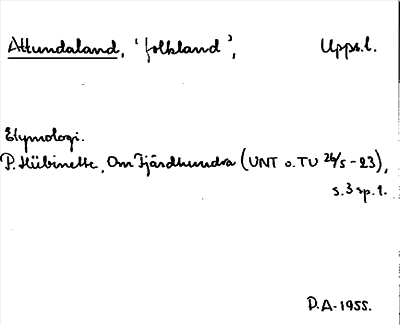 Attundaland, 'folkland', Upps.l.
Etymologi.
P. Hübinette, Om Fjärdhundra (UNT o. TU 26/5 -23),
s. 3 sp. 1.
D.A. 1955.